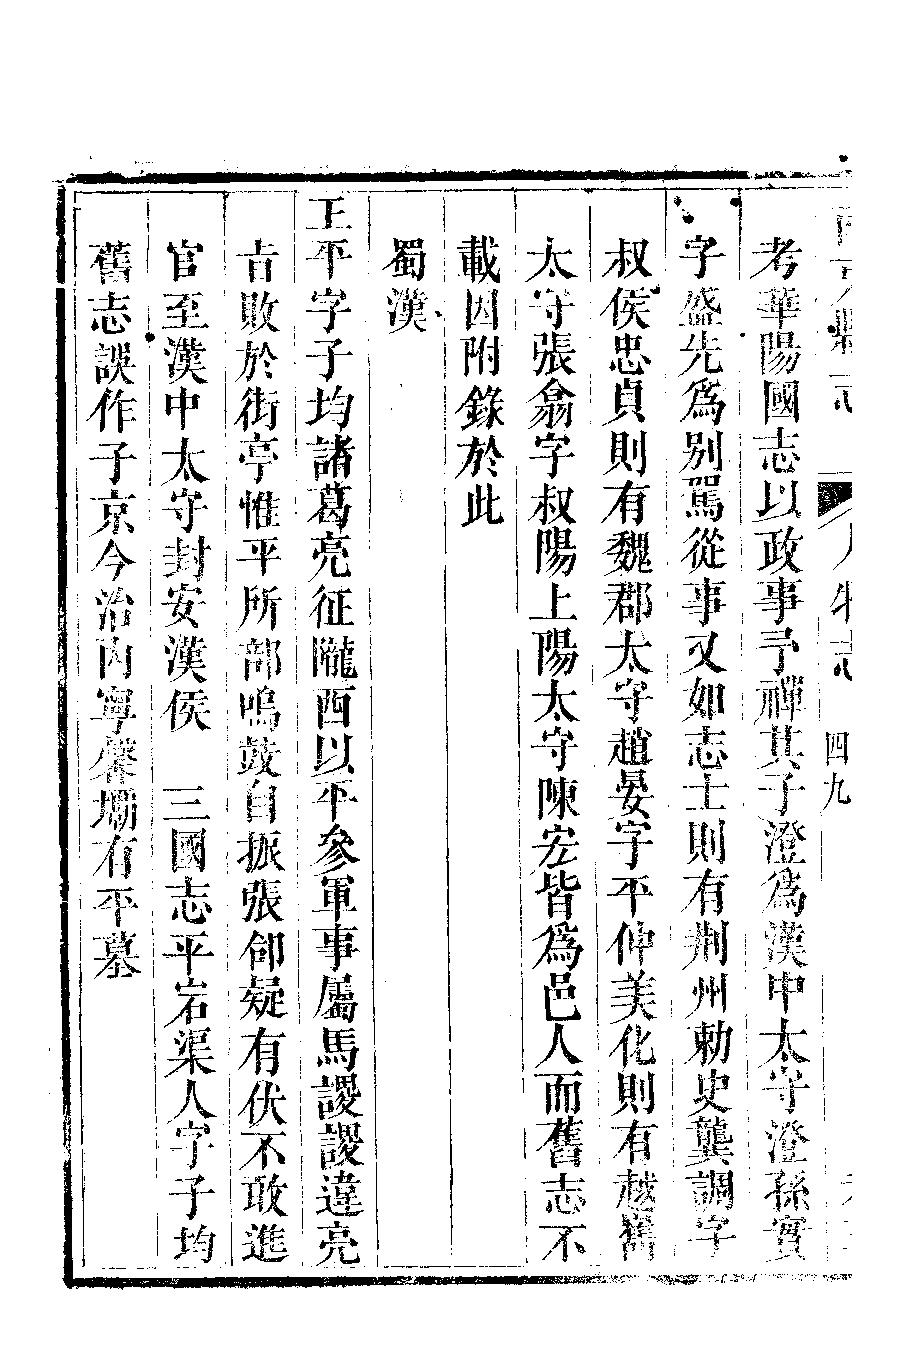 人物志 四九
考華陽國志以政事予禪其子澄爲漢中太守澄孫實
字盛先爲別駕從事又如志士則有荆州勅史龔調字
叔侯忠貞則有魏郡太守趙晏字平仲美化則有越巂
太守張翕字叔陽上陽太守陳宏皆爲邑人而舊志不
載因附錄於此
蜀漢
王平字子均諸葛亮征隴西以平參軍事屬馬謖謖違亮
吉敗於街亭惟平所部鳴鼓自振張郃疑有伏不敢進
官至漢中太守封安漢侯 三國志平宕渠人字子均
舊志誤作子京今治內寧聲壩有平墓